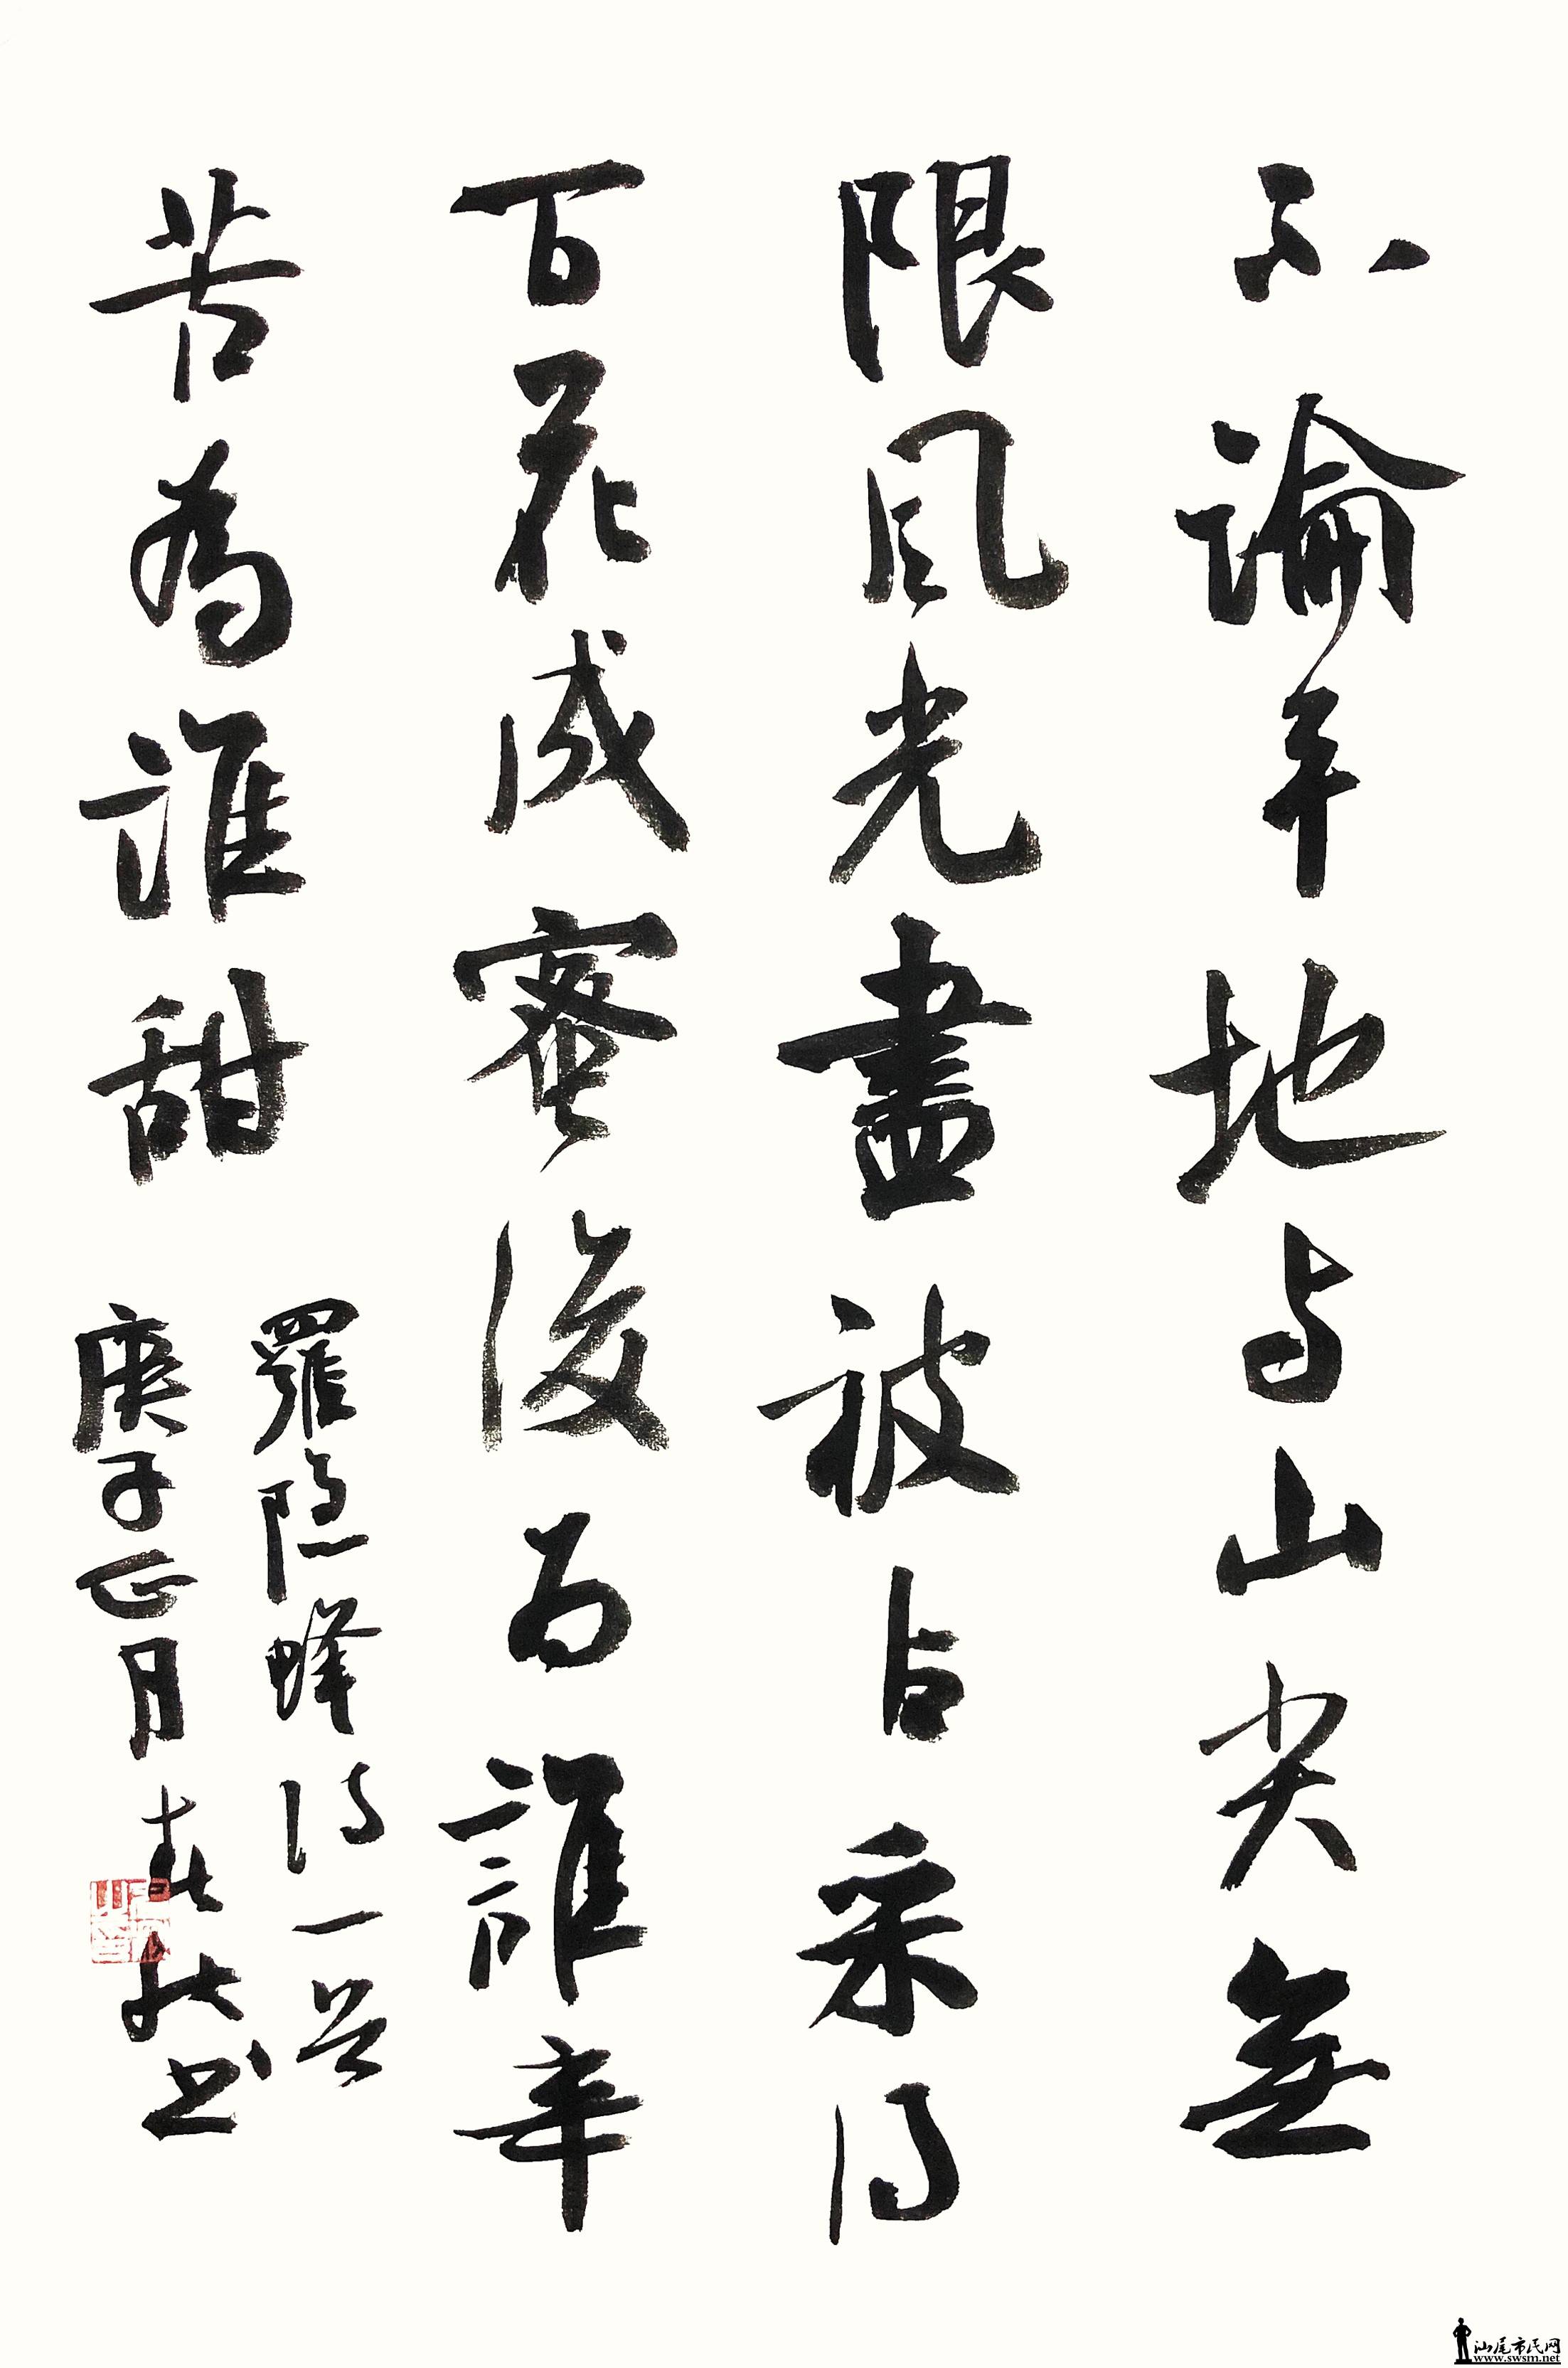 不論平地与山尖無
限風光盡被占采得
百花成蜜後为誰辛
苦為誰甜
羅隐蜂诗一首
庚子正月春欣书
汕尾市民网
www.swsm.net